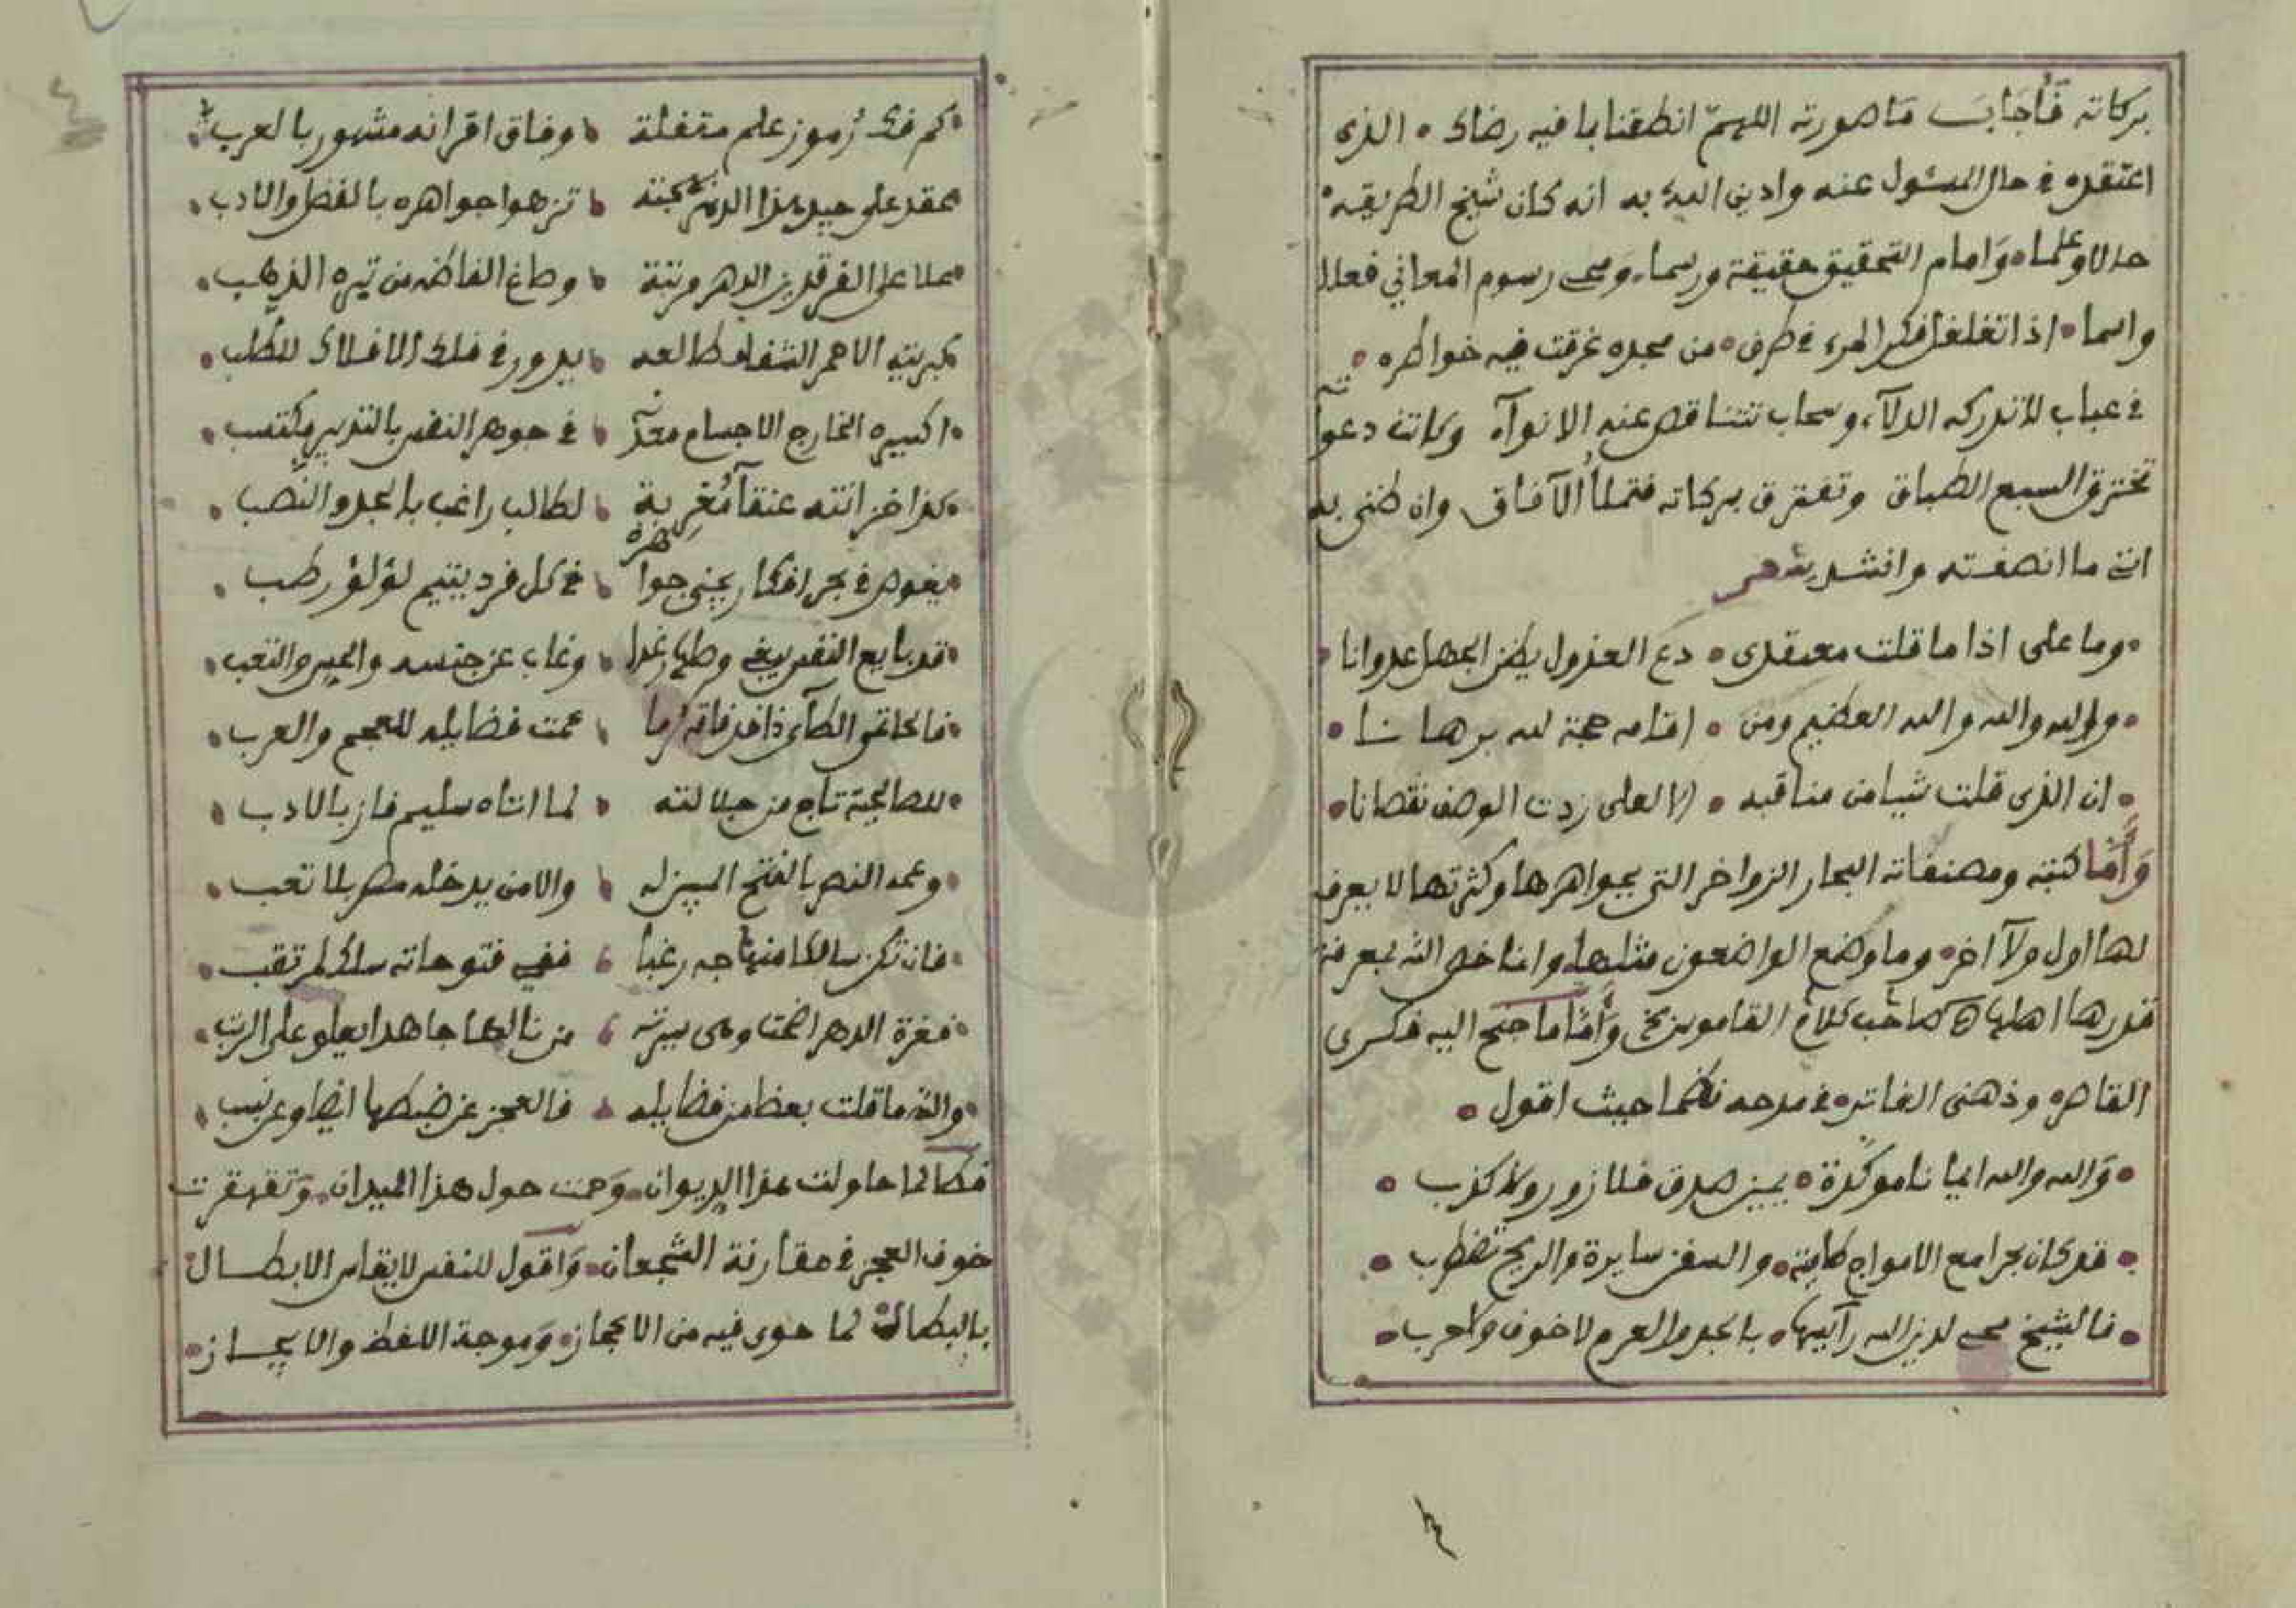 بركاته فأجاب ما صورته اللهم انطقنا بما فيه رضاك • الذى
اعتقده في حال المسئول عنه وادين الله به انه كان شيخ الطريقه
حالا وعلما • وامام التحقيق حقيقة ورسما • ومحى رسوم المعاني فعلا
واسما • اذا تغلغل فكر المرء في طرف • من مجده غرقت فيه خواطره •
في عباب لا تدركه الدلاء، وسحاب تتناقص عنه الانوآء وكانت دعواته
تخترق السبع الطباق وتفترق بركاته فتملأ الآفاق وان ظنى به
انني ما انصفته وانشد شعر
• وما على اذا ما قلت معتقدى • دع العذول يظن الجهل عدوانا •
• والله والله والله العظيم ومن • اقامه حجة لله برهانا •
• ان الذى قلت شيا من مناقبه • الا لعلى زدت الوصف نقصانا •
وأما كتبه ومصنفاته البحار الزواخر التى بجواهرها وكثرتها لا يعرف
لها اول ولا آخر • وما وضع الواضعون مثلها وانما خص الله بمعرفة
قدرها اهلها كلام القاموس وأما ما جنح اليه فكرى
القاصر • وذهنى الفاتر • في مدحه نظما حيث اقول •
• والله والله ايمانا موكدة • يمين صدق فلا زور ولا كذب •
• قد كان بحرا مع الامواج • والسفن سايرة والريح تضطرب •
• فالشيخ محي لدين الله • بالجد والعزم لا خوف ولا حرب •
• كم فك رموز علم مقفلة • وفاق اقرانه مشهور بالعرب
• عقد على جيد هذا الدهر • تزهوا جواهره بالفضل والادب •
• علا على الفرقدين الدهر مرتبة • وصاغ الفاظه من تبره الذهب •
• كبريته الاحمر الشفاف طالعه • يدور في فلك الافلاك للطلب •
• اكسيره الخارج الاجسام • في جوهر النفس بالتدبير مكتسب •
• كذا خزانته عنقآء مغربة • لطالب راغب بالجد والنصب •
• يغوص في بحر افكار يجنى جواهره • في كل فرد يتيم لؤلؤ رطب •
• قد بايع النفس • وغاب عن جنسه والتعب •
• عمت فضايله للعجم والعرب •
• تاج من جلالته • لما اتاه سليم فاز بالادب •
• وعمه النصر بالفتح المبين له • والامن يدخله مصر بلا تعب •
• فان تكن سالكا منهاجه رغبا • ففي فتوحاته سلك لمرتقب •
• فغرة الدهر اضحت وهى سيرته • من نالها جاهدا يعلو على الرتب •
• والله ما قلت بعضا من فضايله • فالعجز عن ضبطها ايضا
فكلما حاولت هذا الديوان • وحمت حول هذا الميدان • وتقهقرت
خوف العجز في مقارنة الشجعان • واقول للنفس لا يقاس الابطال
بالبطال • لما حوى فيه من الاعجاز • وموجة اللفظ والايجاز •